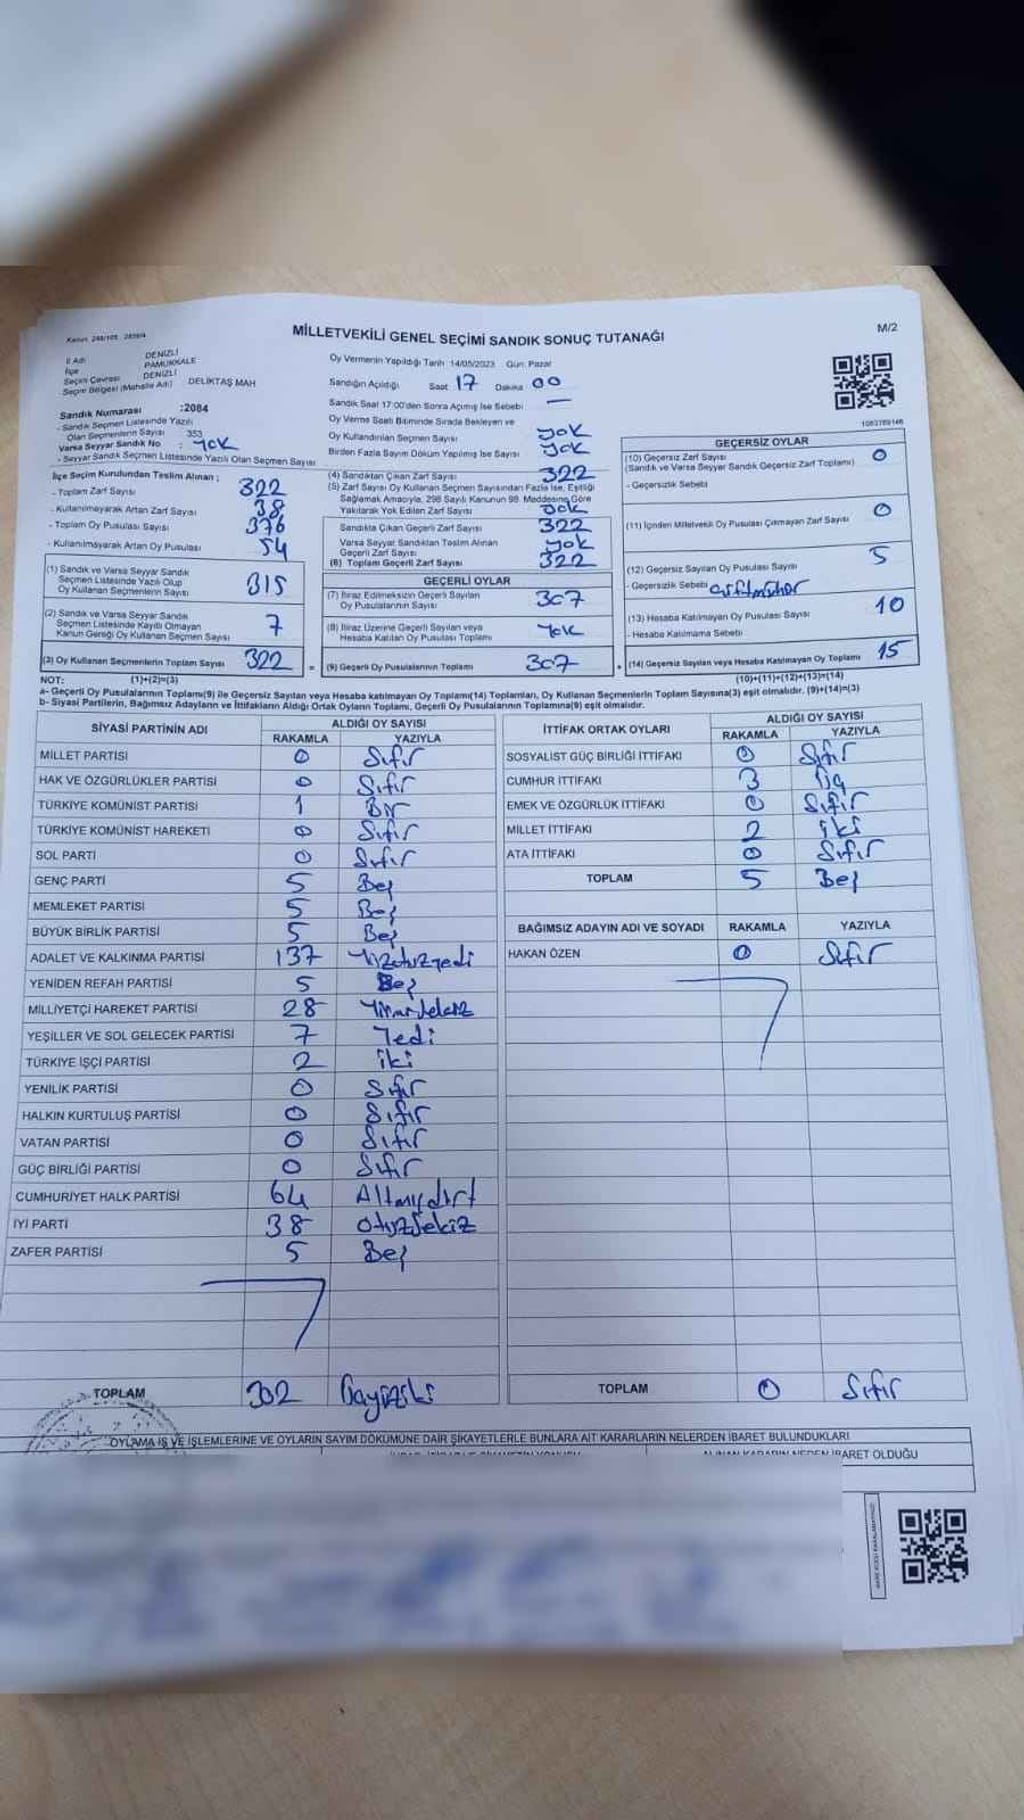 Kanun: 298/105 - 2839/4
MİLLETVEKİLİ GENEL SEÇİMİ SANDIK SONUÇ TUTANAĞI
M/2
İl Adı DENİZLİ
İlçe PAMUKKALE
Seçim Çevresi DENİZLİ
Seçim Bölgesi (Mahalle Adı) DELİKTAŞ MAH
Sandık Numarası :2084
- Sandık Seçmen Listesinde Yazılı
Olan Seçmenlerin Sayısı 353
Varsa Seyyar Sandık No : Yok
- Seyyar Sandık Seçmen Listesinde Yazılı Olan Seçmen Sayısı
Oy Vermenin Yapıldığı Tarih :14/05/2023 Gün: Pazar
Sandığın Açıldığı Saat 17 Dakika 00
Sandık Saat 17:00'den Sonra Açılmış İse Sebebi —
Oy Verme Saati Bitiminde Sırada Bekleyen ve
Oy Kullandırılan Seçmen Sayısı yok
Birden Fazla Sayım Döküm Yapılmış İse Sayısı yok
İlçe Seçim Kurulundan Teslim Alınan ;
- Toplam Zarf Sayısı 322
- Kullanılmayarak Artan Zarf Sayısı 38
- Toplam Oy Pusulası Sayısı 376
- Kullanılmayarak Artan Oy Pusulası 54
(1) Sandık ve Varsa Seyyar Sandık
Seçmen Listesinde Yazılı Olup
Oy Kullanan Seçmenlerin Sayısı 315
(2) Sandık ve Varsa Seyyar Sandık
Seçmen Listesinde Kayıtlı Olmayan
Kanun Gereği Oy Kullanan Seçmen Sayısı 7
(3) Oy Kullanan Seçmenlerin Toplam Sayısı 322 =
(4) Sandıktan Çıkan Zarf Sayısı 322
(5) Zarf Sayısı Oy Kullanan Seçmen Sayısından Fazla İse, Eşitliği
Sağlamak Amacıyla, 298 Sayılı Kanunun 98. Maddesine Göre
Yakılarak Yok Edilen Zarf Sayısı yok
Sandıkta Çıkan Geçerli Zarf Sayısı 322
Varsa Seyyar Sandıktan Teslim Alınan
Geçerli Zarf Sayısı yok
(6) Toplam Geçerli Zarf Sayısı 322
GEÇERLİ OYLAR
(7) İtiraz Edilmeksizin Geçerli Sayılan
Oy Pusulalarının Sayısı 307
(8) İtiraz Üzerine Geçerli Sayılan veya
Hesaba Katılan Oy Pusulası Toplamı Yok
(9) Geçerli Oy Pusulalarının Toplamı 307 +
1063789146
GEÇERSİZ OYLAR
(10) Geçersiz Zarf Sayısı 0
(Sandık ve Varsa Seyyar Sandık Geçersiz Zarf Toplamı)
- Geçersizlik Sebebi
(11) İçinden Milletvekili Oy Pusulası Çıkmayan Zarf Sayısı 0
(12) Geçersiz Sayılan Oy Pusulası Sayısı 5
- Geçersizlik Sebebi
(13) Hesaba Katılmayan Oy Pusulası Sayısı 10
- Hesaba Katılmama Sebebi
(14) Geçersiz Sayılan veya Hesaba Katılmayan Oy Toplamı 15
NOT: (1)+(2)=(3) (10)+(11)+(12)+(13)=(14)
a- Geçerli Oy Pusulalarının Toplamı(9) ile Geçersiz Sayılan veya Hesaba katılmayan Oy Toplamı(14) Toplamları, Oy Kullanan Seçmenlerin Toplam Sayısına(3) eşit olmalıdır. (9)+(14)=(3)
b- Siyasi Partilerin, Bağımsız Adayların ve İttifakların Aldığı Ortak Oyların Toplamı, Geçerli Oy Pusulalarının Toplamına(9) eşit olmalıdır.
SİYASİ PARTİNİN ADI ALDIĞI OY SAYISI
RAKAMLA YAZIYLA
MİLLET PARTİSİ 0 Sıfır
HAK VE ÖZGÜRLÜKLER PARTİSİ 0 Sıfır
TÜRKİYE KOMÜNİST PARTİSİ 1 Bir
TÜRKİYE KOMÜNİST HAREKETİ 0 Sıfır
SOL PARTİ 0 Sıfır
GENÇ PARTİ 5 Beş
MEMLEKET PARTİSİ 5 Beş
BÜYÜK BİRLİK PARTİSİ 5 Beş
ADALET VE KALKINMA PARTİSİ 137 Yüzotuzyedi
YENİDEN REFAH PARTİSİ 5 Beş
MİLLİYETÇİ HAREKET PARTİSİ 28 Yirmisekiz
YEŞİLLER VE SOL GELECEK PARTİSİ 7 Yedi
TÜRKİYE İŞÇİ PARTİSİ 2 iki
YENİLİK PARTİSİ 0 Sıfır
HALKIN KURTULUŞ PARTİSİ 0 Sıfır
VATAN PARTİSİ 0 Sıfır
GÜÇ BİRLİĞİ PARTİSİ 0 Sıfır
CUMHURİYET HALK PARTİSİ 64 Altmışdört
İYİ PARTİ 38 otuzsekiz
ZAFER PARTİSİ 5 Beş
TOPLAM 302 üçyüziki
İTTİFAK ORTAK OYLARI ALDIĞI OY SAYISI
RAKAMLA YAZIYLA
SOSYALİST GÜÇ BİRLİĞİ İTTİFAKI 0 Sıfır
CUMHUR İTTİFAKI 3 üç
EMEK VE ÖZGÜRLÜK İTTİFAKI 0 Sıfır
MİLLET İTTİFAKI 2 iki
ATA İTTİFAKI 0 Sıfır
TOPLAM 5 Beş
BAĞIMSIZ ADAYIN ADI VE SOYADI RAKAMLA YAZIYLA
HAKAN ÖZEN 0 Sıfır
TOPLAM 0 Sıfır
OYLAMA İŞ VE İŞLEMLERİNE VE OYLARIN SAYIM DÖKÜMÜNE DAİR ŞİKAYETLERLE BUNLARA AİT KARARLARIN NELERDEN İBARET BULUNDUKLARI
ALINAN KARARIN NEDEN İBARET OLDUĞU